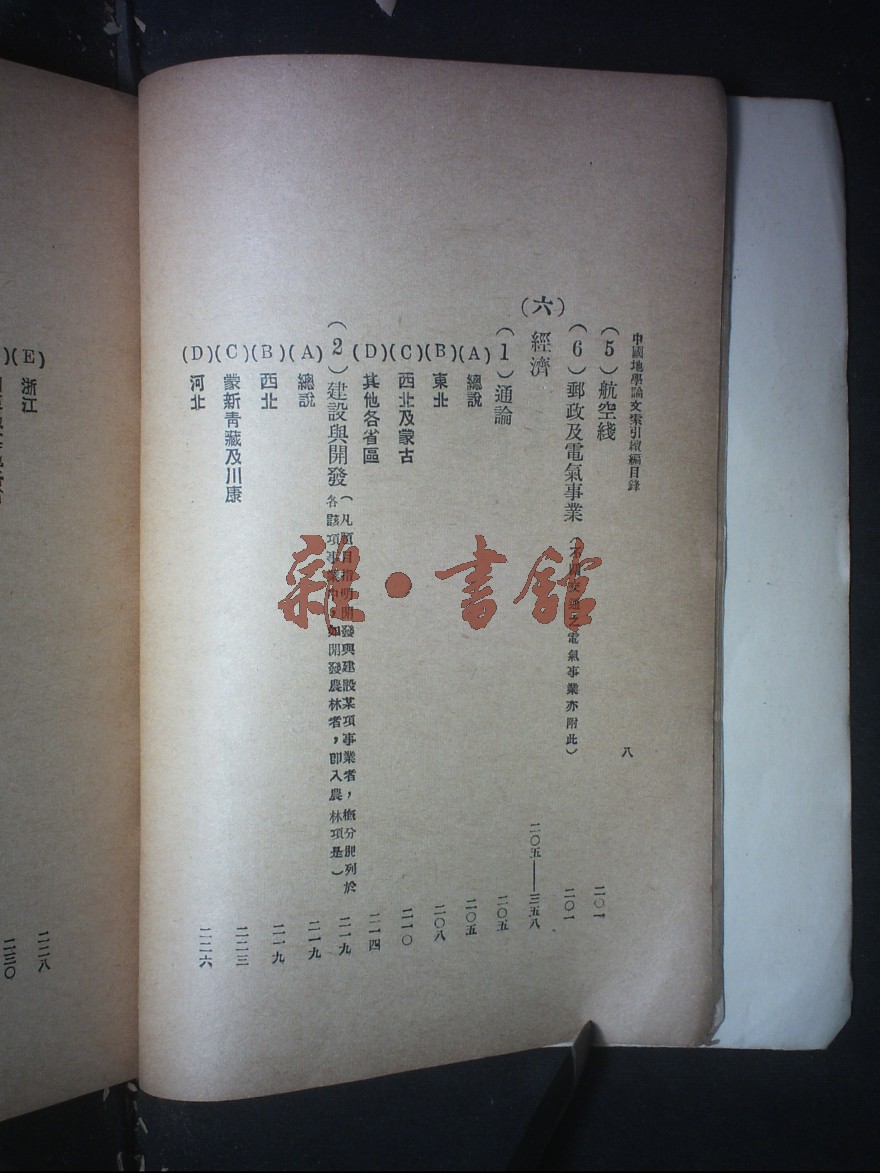 中國地學論文索引續編目錄 八
(5)航空綫 二〇一
(6)郵政及電氣事業(不關交通之電氣事業亦附此) 二〇一
(六)經濟 二〇五——三五八
(1)通論 二〇五
(A)總說 二〇五
(B)東北 二〇八
(C)西北及蒙古 二一〇
(D)其他各省區 二一四
(2)建設與開發(凡題目指明開發與建設某項事業者，概分別列於
各該項事業中，如開發農林者，即入農林項是) 二一九
(A)總說 二一九
(B)西北 二一九
(C)蒙新青藏及川康 二二三
(D)河北 二二六
(E)浙江 二二八
二三〇
雜·書館